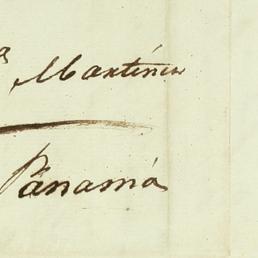 a Martines
Panamá